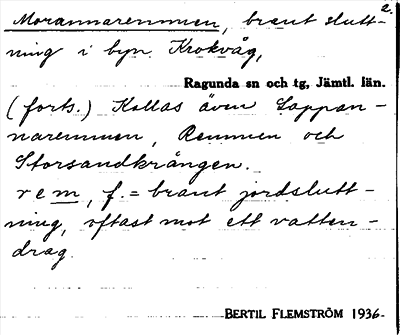 2.
Morannaremmen, brant slutt-
ning i byn Krokvåg,
Ragunda sn och tg, Jämtl. län.
(forts.) Kallas även Lappan-
naremmen, Remmen och
Storsandkrången.
rem, f. = brant jordslutt-
ning, oftast mot ett vatten-
drag.
BERTIL FLEMSTRÖM 1936.